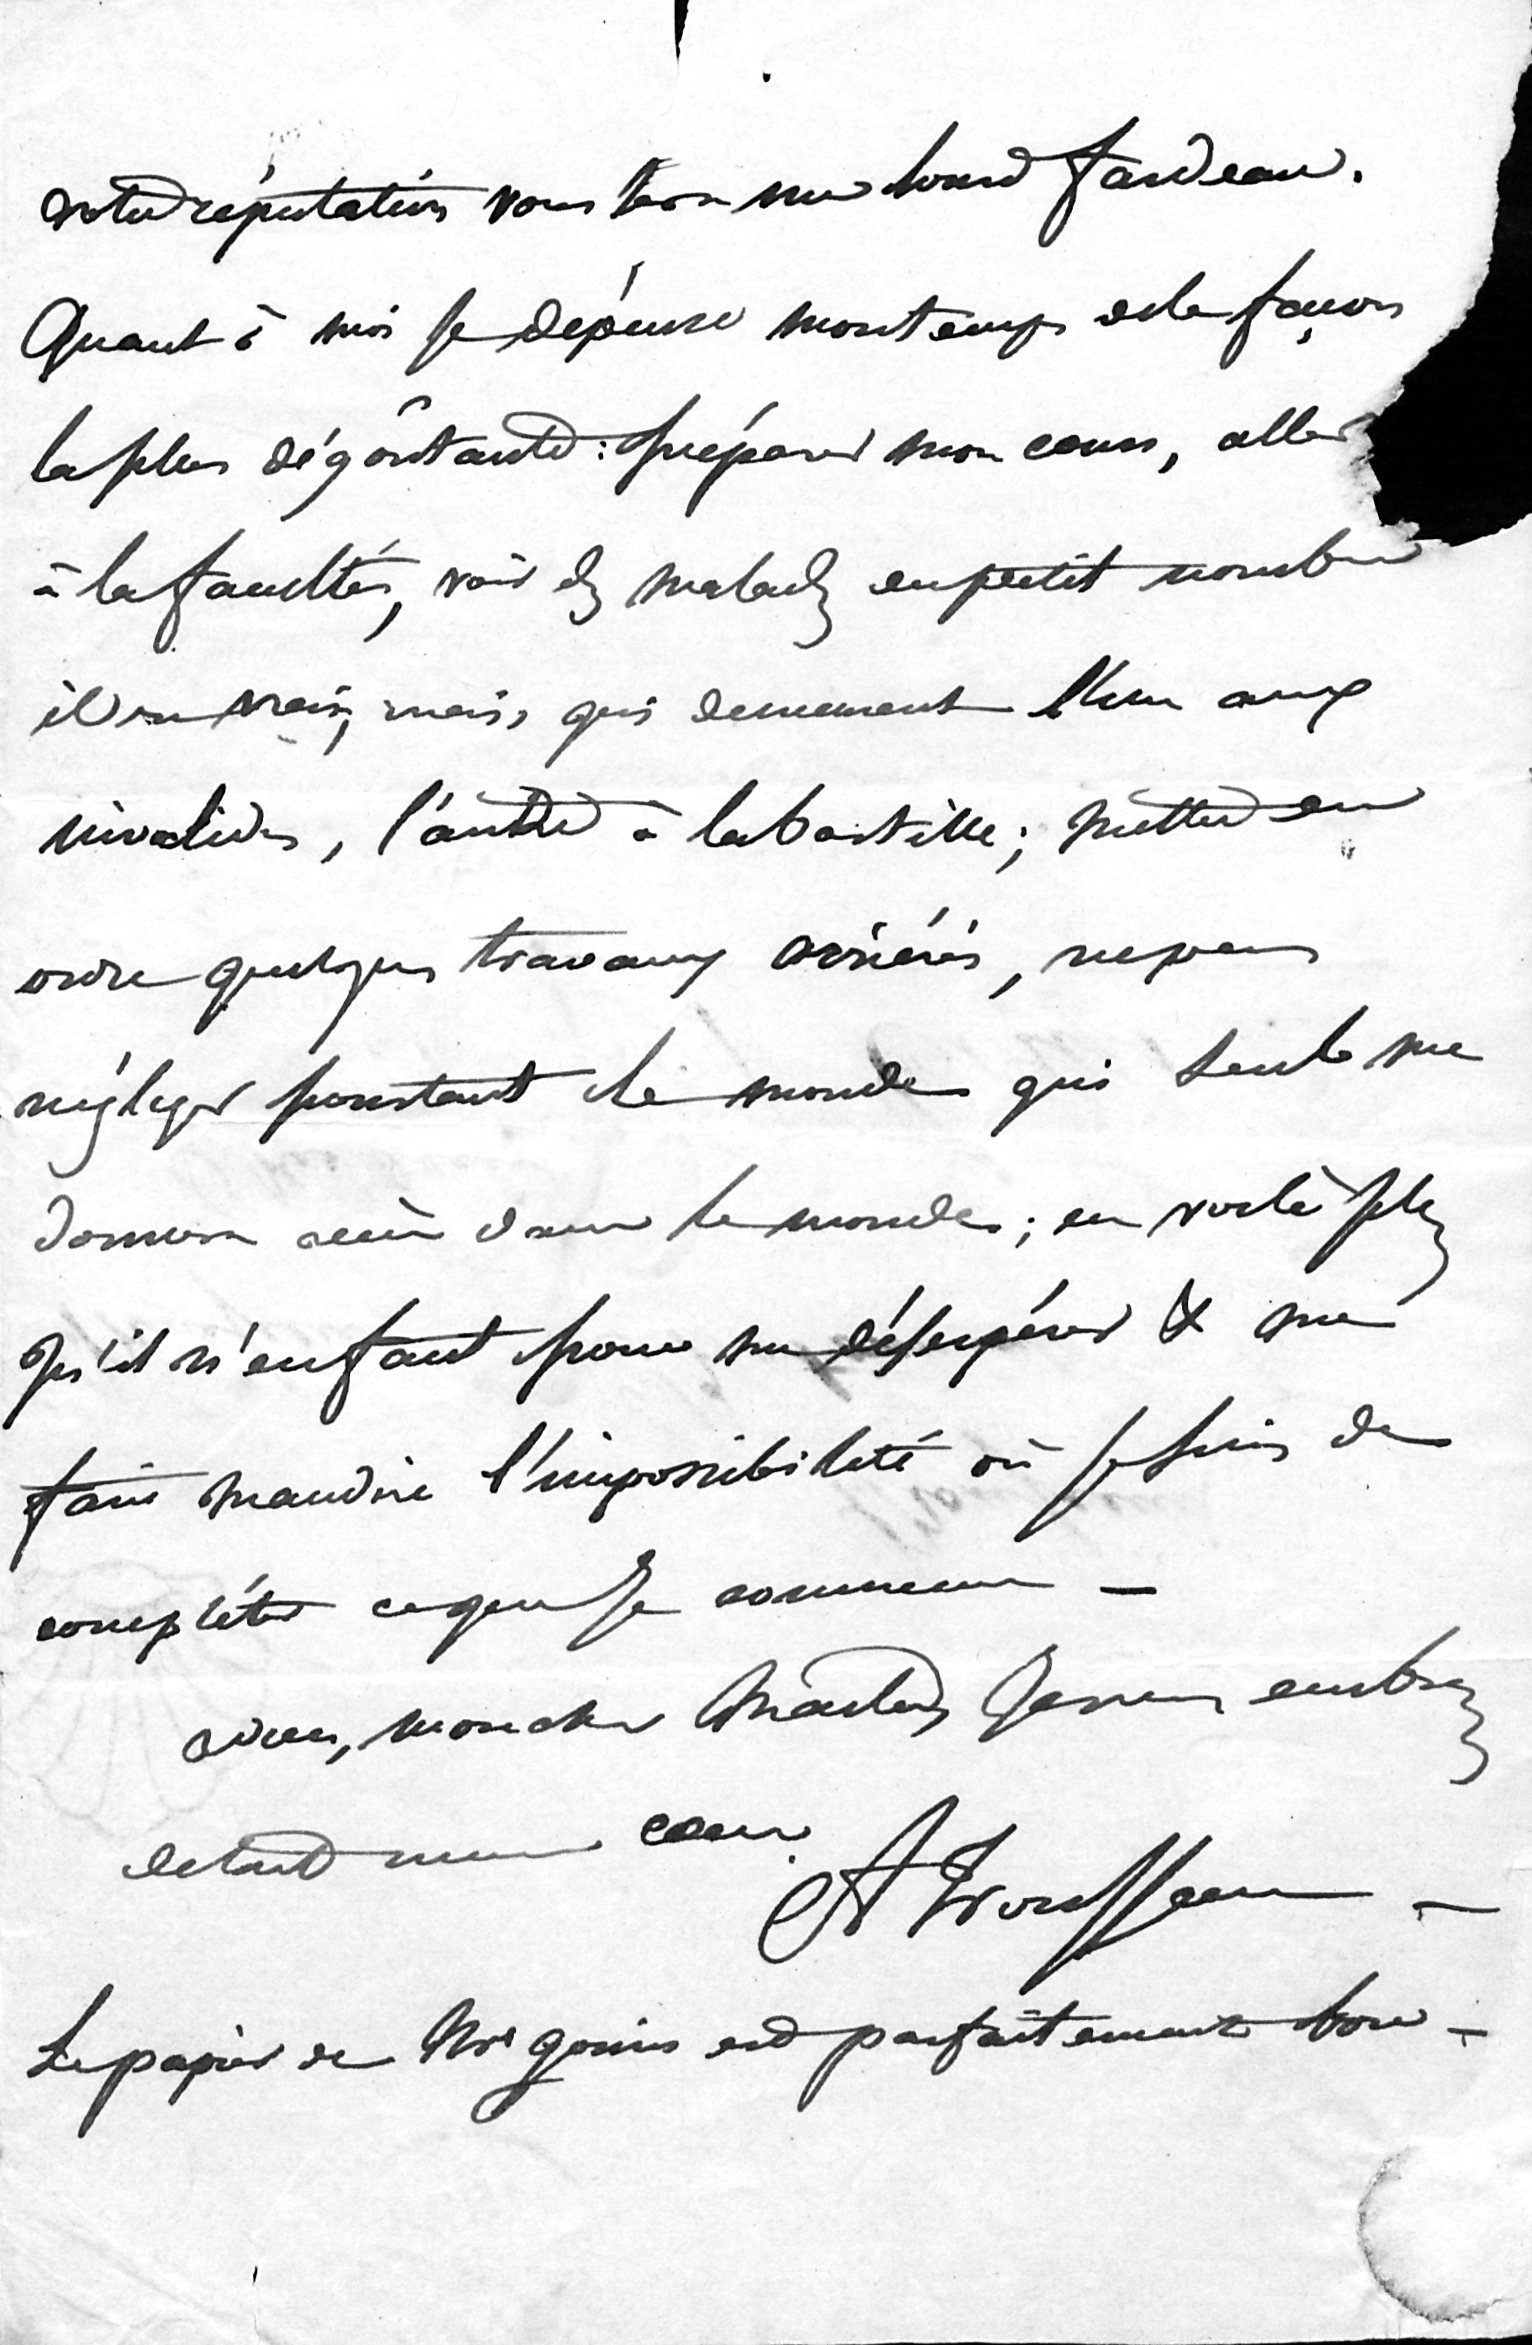 votre réputation vous sera un lourd fardeau.
Quant à moi je dépense mon temps de la façon
la plus dégoûtante : préparer mon cours, aller
à la faculté, voir des malades en petit nombre
il est vrai, mais qui demeurent l'un aux
invalides, l'autre à la bastille ; mettre en
ordre quelques travaux arriérés, ne pas
négliger pourtant le monde qui seul me
donnera accès dans le monde ; en voilà plus
qu'il n'en faut pour me désespérer & me
faire maudire l'impossibilité où je suis de
compléter ce que je commence —
adieu, mon cher je vous embrasse
de tout mon cœur.
A Trousseau —
Le papier de Mr gouin est parfaitement bon —